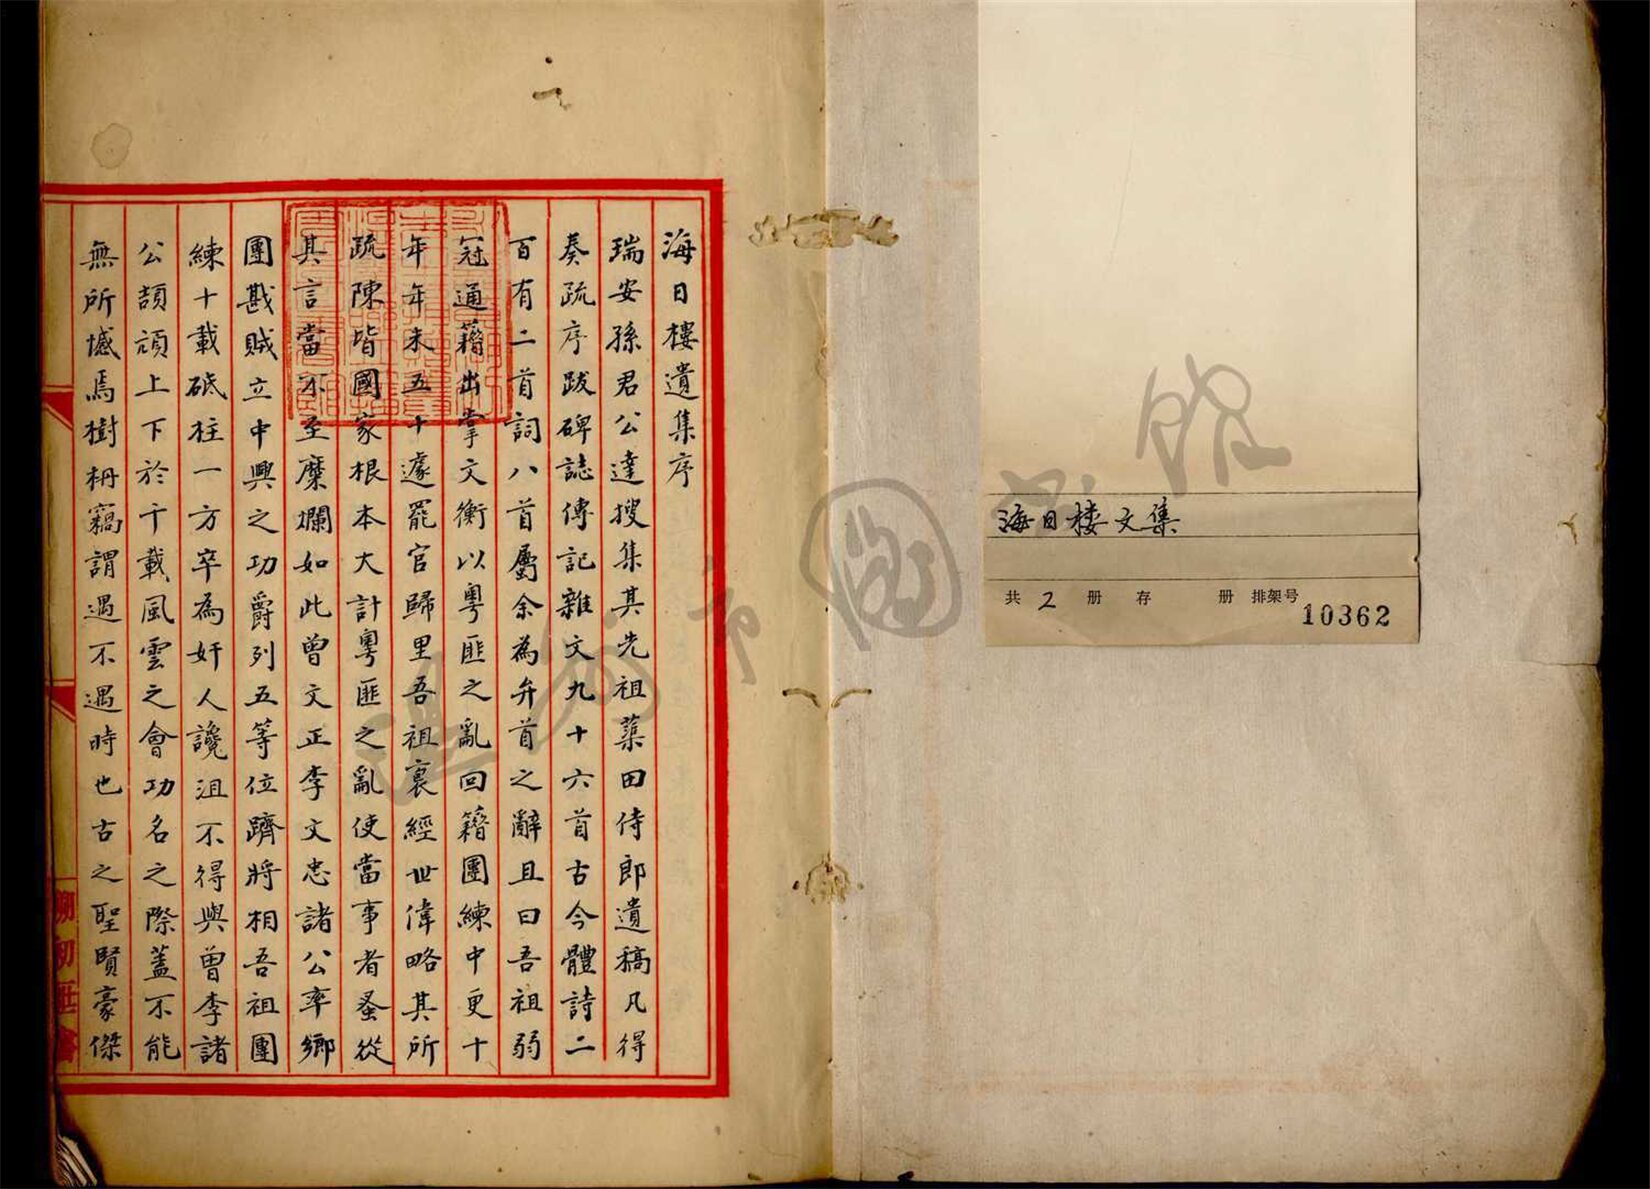 海日楼文集
共 2 册 存 册 排架号
10362
海日樓遺集序
瑞安孫君公達搜集其先祖蕖田侍郎遺稿凡得
奏疏序跋碑誌傳記雜文九十六首古今體詩二
百有二首詞八首屬余為弁首之辭且曰吾祖弱
冠通籍出掌文衡以粵匪之亂回籍團練中更十
年年未五十遽罷官歸里吾祖襄經世偉略其所
疏陳皆國家根本大計粵匪之亂使當事者蚤從
其言當不至糜爛如此曾文正李文忠諸公率鄉
團戡賊立中興之功爵列五等位躋將相吾祖團
練十載砥柱一方卒為奸人讒沮不得與曾李諸
公頡頏上下於千載風雲之會功名之際蓋不能
無所憾焉樹枬竊謂遇不遇時也古之聖賢豪傑
溫州市圖書館